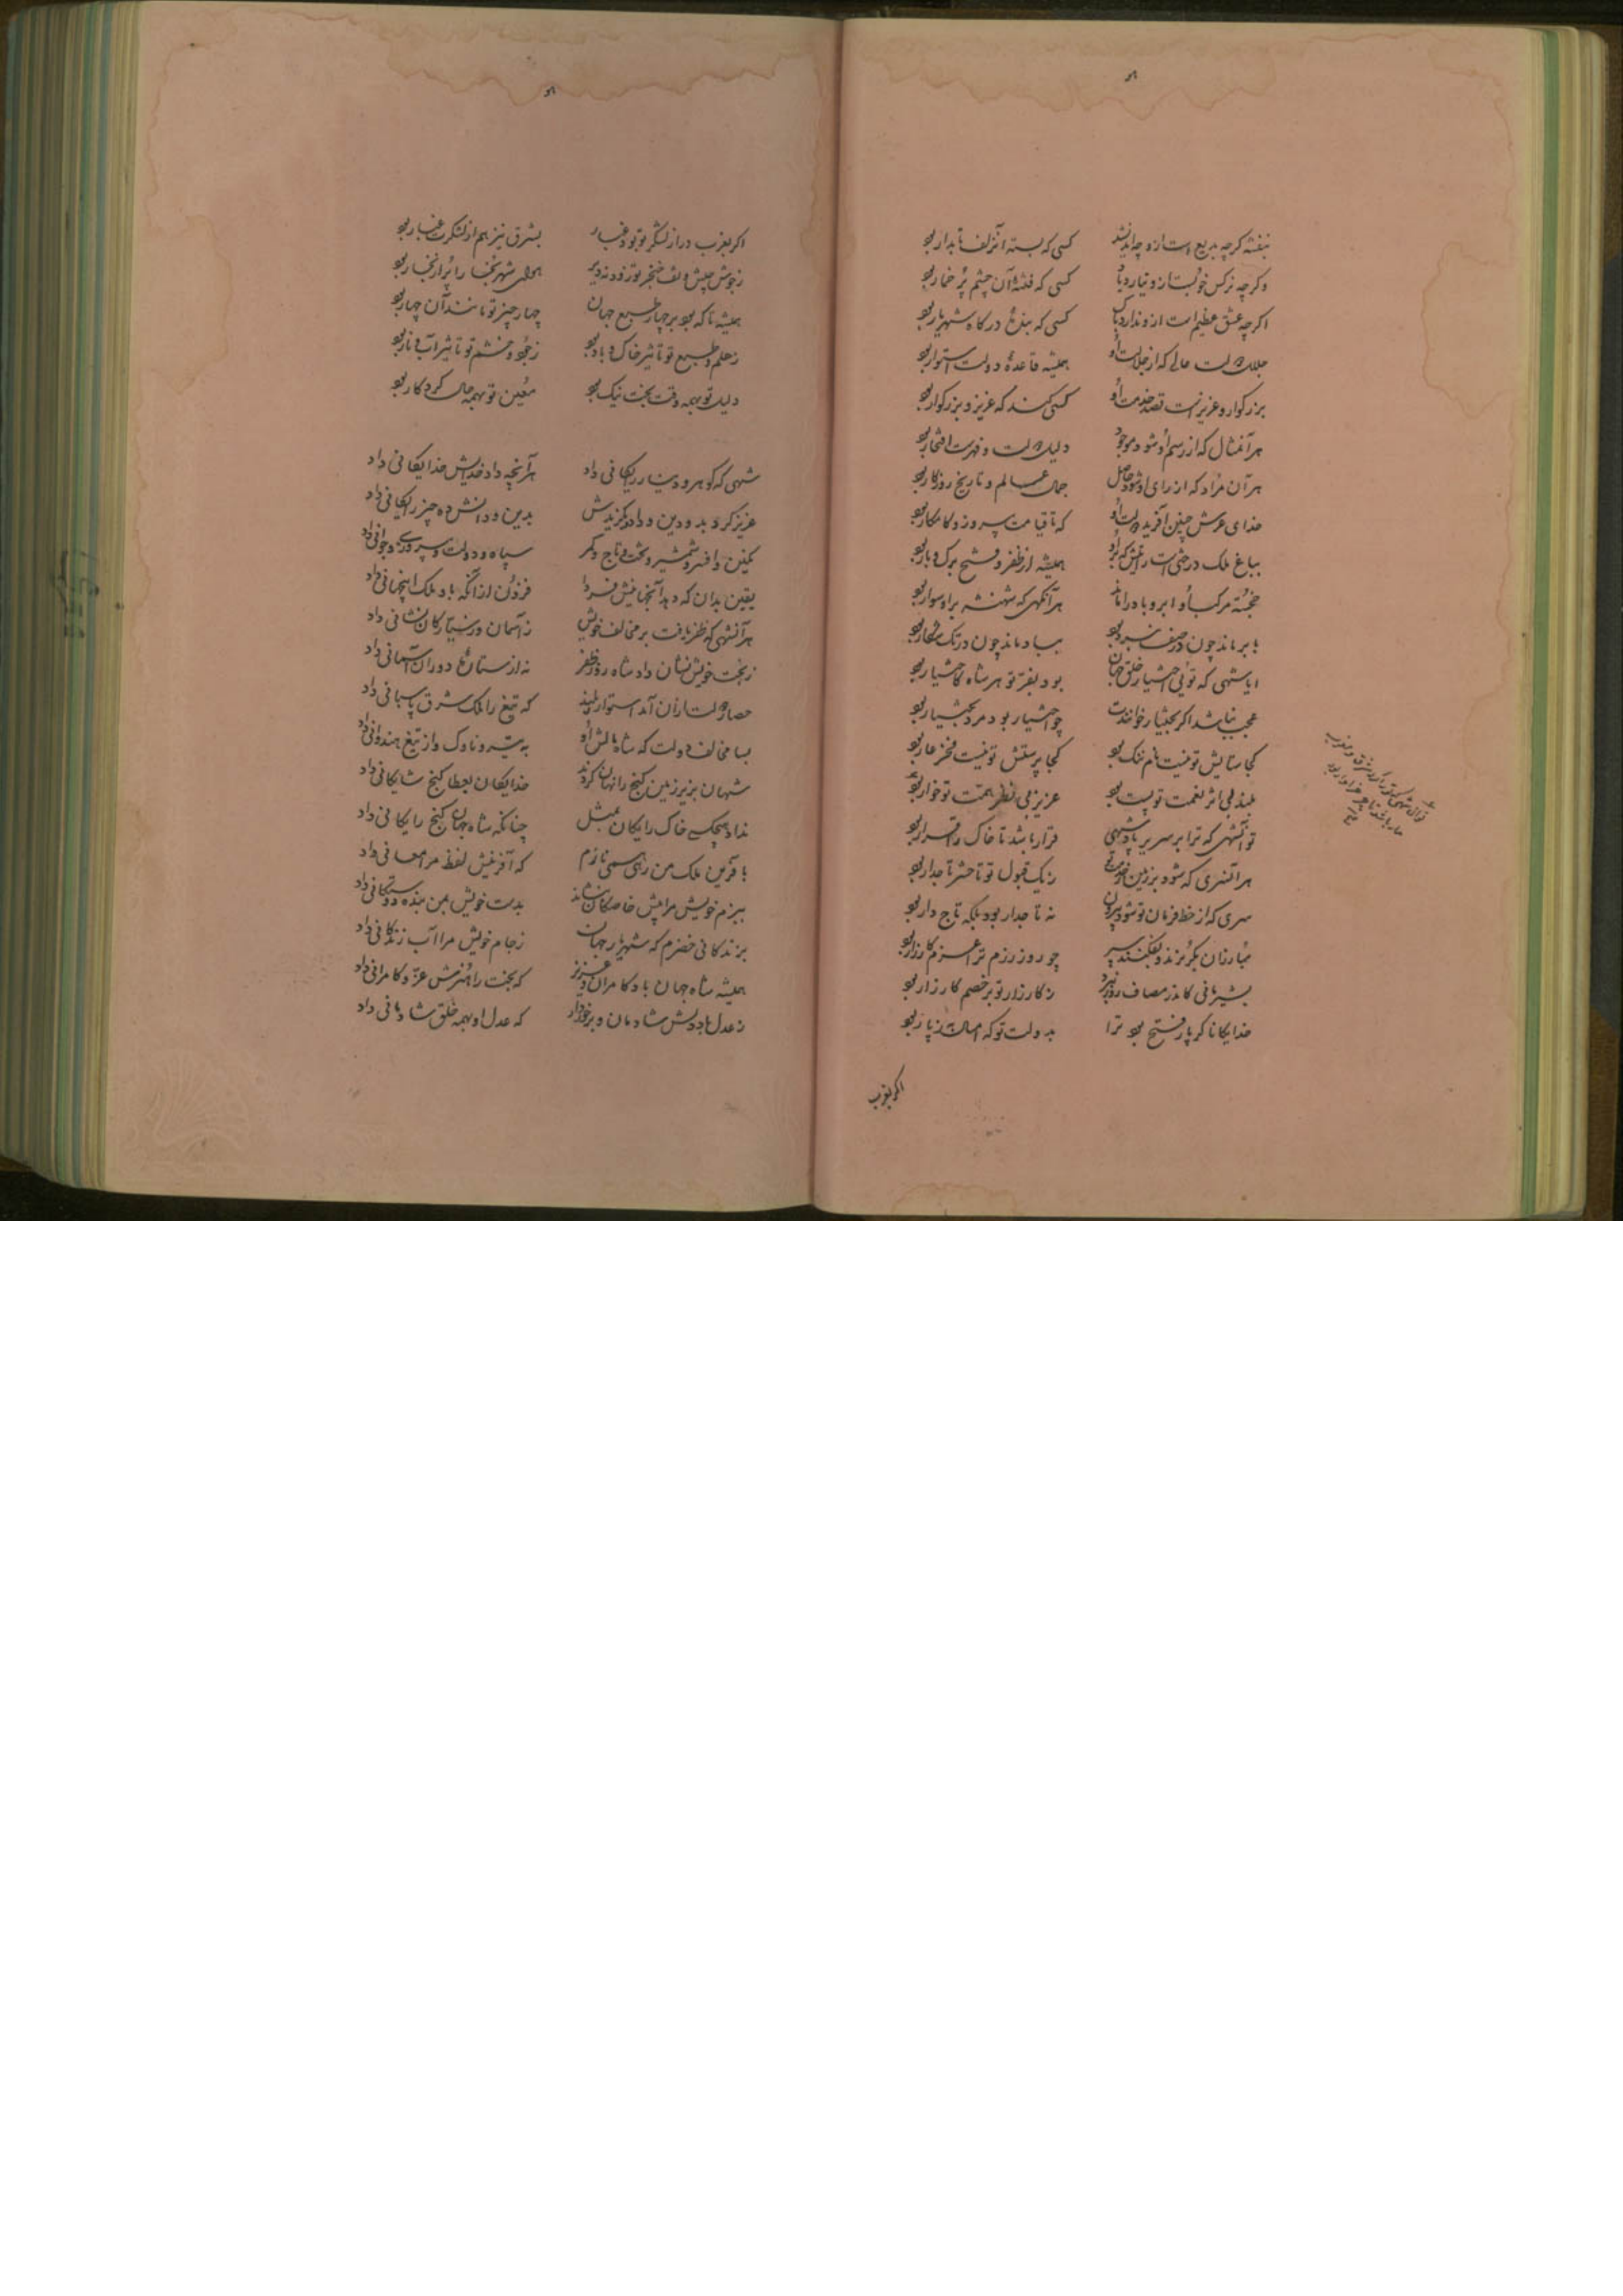 بنفشه گرچه بدیع است ازو چه اندیشد کسی که بسته آنزلف تابدار بود
وگرچه نرگس خوبست ازو نیارد یاد کسی که فتنهٔ آن چشم پُر خمار بود
اگرچه عشق عظیم است ازو ندارد باک کسی که بندهٔ درگاه شهریار بود
جلال دولت عالی که از جلالت او همیشه قاعدهٔ دولت استوار بود
بزرگوار و عزیز است قصد خدمت او کسی کند که عزیز و بزرگوار بود
هر آنمثال که از رسم او شود موجود دلیل دولت و فهرست افتخار بود
هر آن مراد که از رای او شود حاصل جمال عالم و تاریخ روزگار بود
خدای عرش چنین آفرید دولت او که تا قیامت پیروز و کامکار بود
بباغ ملک درختی است رایتش که برو همیشه از ظفر و فتح برگ و بار بود
خجسته مرکب او ابر و باد را ماند هر آنگهی که شهنشه براو سوار بود
بابر ماند چون در صف نبرد بود بباد ماند چون در تک شکار بود
ایا شهی که توئی اختیار خلق جهان بود بفرّ تو هر شاه کاختیار بود
عجب نباشد اگر بختیار خوانندت چو اختیار بود مرد بختیار بود
کجا ستایش تو نیست نام ننگ بود کجا پرستش تو نیست فخر عار بود
بلند بی اثر نعمت تو پست بود عزیز بی نظر همت تو خوار بود
تو آنشهی که ترا بر سریر پادشهی قرار باشد تا خاک را قرار بود
هر آنسری که شود بر زمین خدمت ز یک قبول تو تا حشر تاجدار بود
سری که از خط فرمان تو شود بیرون نه تاجدار بود بلکه تاج دار بود
مبارزان بگریزند و بفکنند سپر چو روز رزم ترا عزم کارزار بود
بشیر مانی کاندر مصاف روز نبرد ز کارزار تو بر خصم کار زار بود
خدایگانا گر پار فتح بود ترا بدولت تو که امسال به ز پار بود
اگر بغرب
اگر بغرب در از لشگر تو بود غبار بشرق نیز هم از لشکرت غبار بود
همیشه تا که بود بر چهار طبع جهان چهار چیز تو مانند آن چهار بود
ز حلم و طبع تو تاثیر خاک و باد بود ز جود و خشم تو تاثیر آب و نار بود
دلیل تو بهمه وقت بخت نیک بود مُعین تو بهمه حال کردگار بود
شهی که گوهر و دینار رایگانی داد هر آنچه داد خدایش خدایگانی داد
عزیز کرد بدو دین و داد و بگزیدش بدین و دانش ده چیز رایگانی داد
نگین و افسر و شمشیر و تخت و تاج و کمر سپاه و دولت و پیروزی و جوانی داد
یقین بدان که دهد آنجهانیش فردا فزون از آنکه بدو ملک اینجهانی داد
هر آنشهی که ظفر یافت بر مخالف خویش ز آسمان و ز سیّارگان نشانی داد
ز بخت خویش نشان داد شاه روز ظفر نه از ستاره و دوران آسمانی داد
حصار دولت از آن آمد استوار و بلند که تیغ را ملک شرق پاسبانی داد
بسا مخالف دولت که شاه مالش او به تیر و ناوک و از تیغ هندوانی داد
شهان بزیر زمین گنج را نهان کردند خدایگان بعطا گنج شایگانی داد
نداد هیچکسی خاک رایگان بمثل چنانکه شاه جهان گنج رایگانی داد
بآفرین ملک من رهی همی نازم که آفرینش لفظ مرا معانی داد
ببزم خویش مرا پیش خاصگان بنشاند بدست خویش بمن بنده دوستگانی داد
بزندگانی خضرم که شهریار جهان ز جام خویش مرا آب زندگانی داد
همیشه شاه جهان باد کامران و عزیز که بخت راهنمرش عزّ و کامرانی داد
ز عدل باد دلش شادمان و برخوردار که عدل او بهمه خلق شادمانی داد